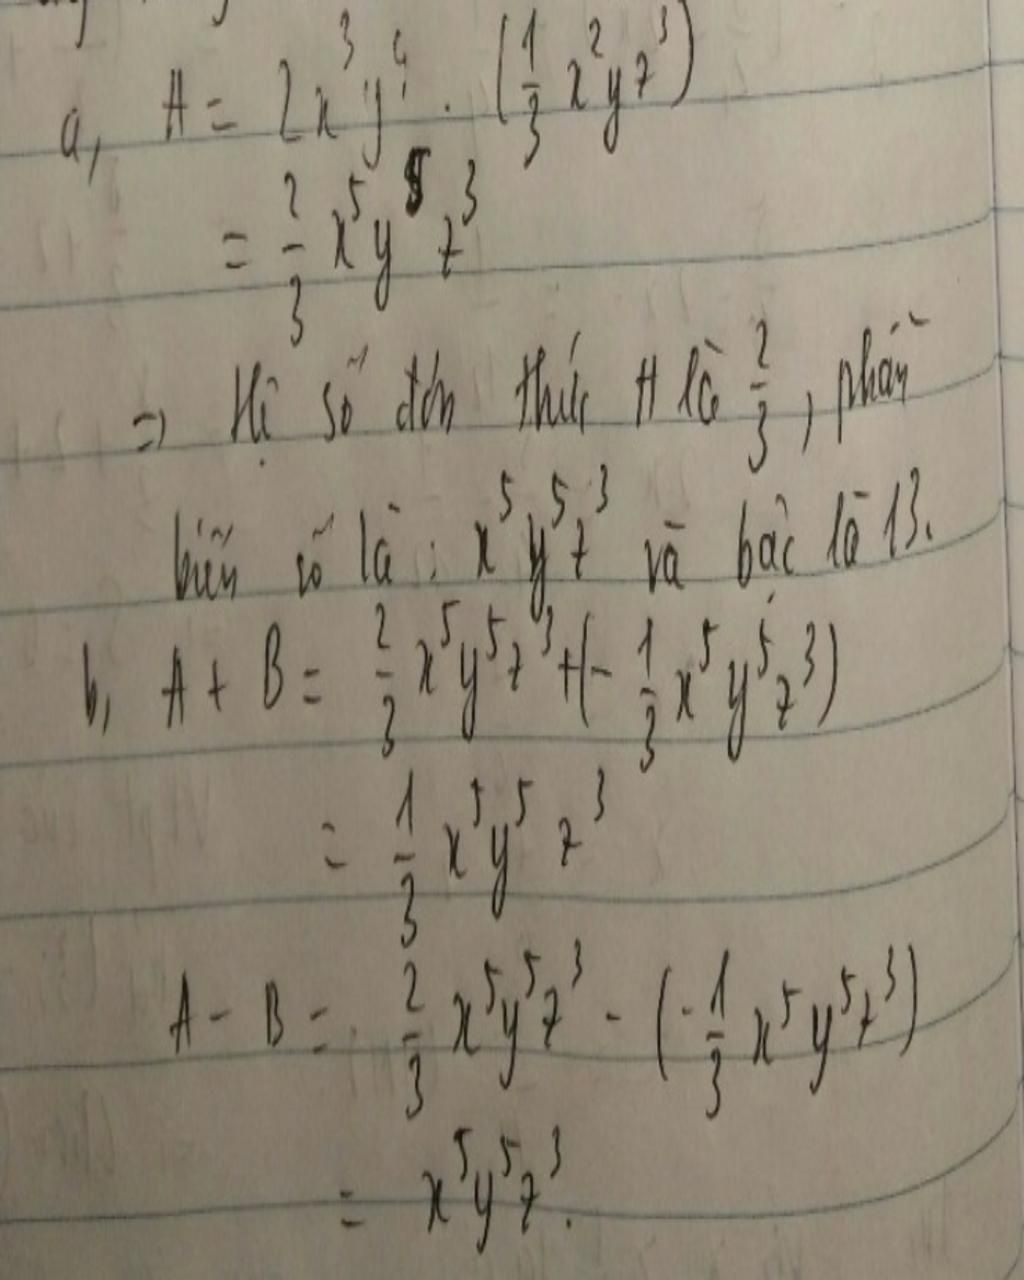 a, A = 2x³y⁴ . (1/3 x²yz³)
= 2/3 x⁵y⁵z³
=> Hệ số đơn thức A là 2/3, phần
biến số là : x⁵y⁵z³ và bậc là 13.
b, A + B = 2/3 x⁵y⁵z³ + (- 1/3 x⁵y⁵z³)
= 1/3 x⁵y⁵z³
A - B = 2/3 x⁵y⁵z³ - (- 1/3 x⁵y⁵z³)
= x⁵y⁵z³.